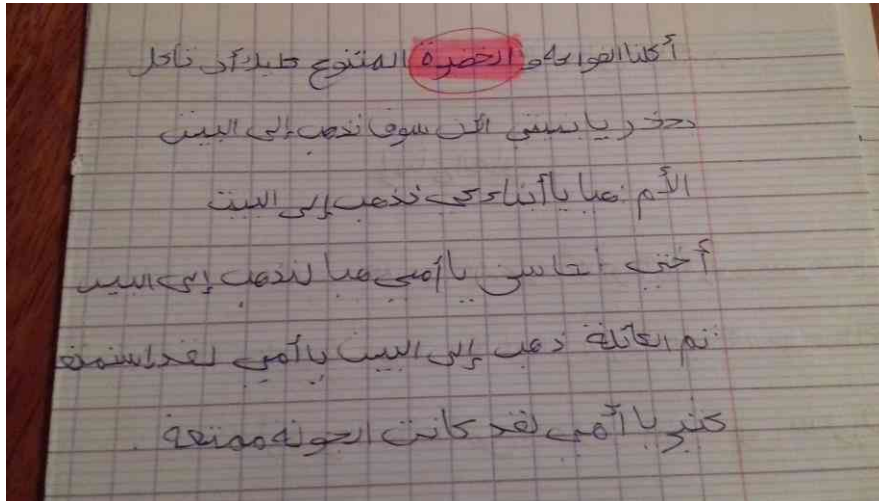 أكلنا الفواكه و الخضرة المتنوع عليك أن تأكل
بحذر يا سيفي الآن سوف نذهب إلى البيت
الأم : هيا يا أبناءي نذهب إلى البيت
أختي : يا أمي هيا لنذهب إلى البيت
ثم العائلة ذهب إلى البيت يا أمي لقد استمتع
كثير يا أمي لقد كانت الجولة ممتعة .